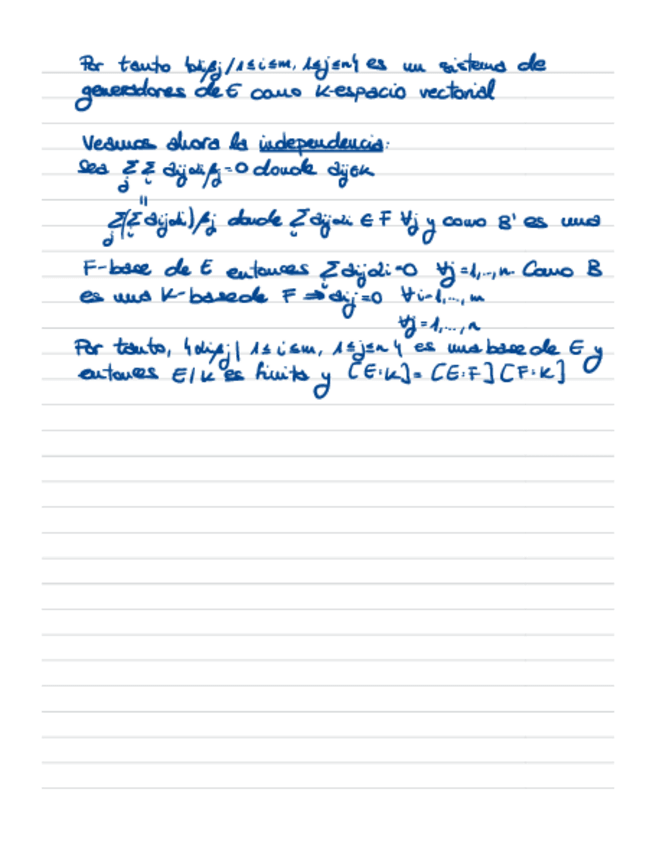 Por tanto {αiβj / 1≤i≤m, 1≤j≤n} es un sistema de
generadores de E como K-espacio vectorial
Veamos ahora la independencia:
Sea Σj Σi aijαiβj = 0 donde aij∈K
"
Σj(Σi aijαi)βj donde Σi aijαi ∈ F ∀j y como B' es una
F-base de E entonces Σi aijαi=0 ∀j=1,..,n. Como B
es una K-base de F ⇒ aij=0 ∀i=1,..., m
∀j=1,...,n
Por tanto, {αiβj | 1≤i≤m, 1≤j≤n} es una base de E y
entonces E/K es finita y [E:K]=[E:F][F:K]